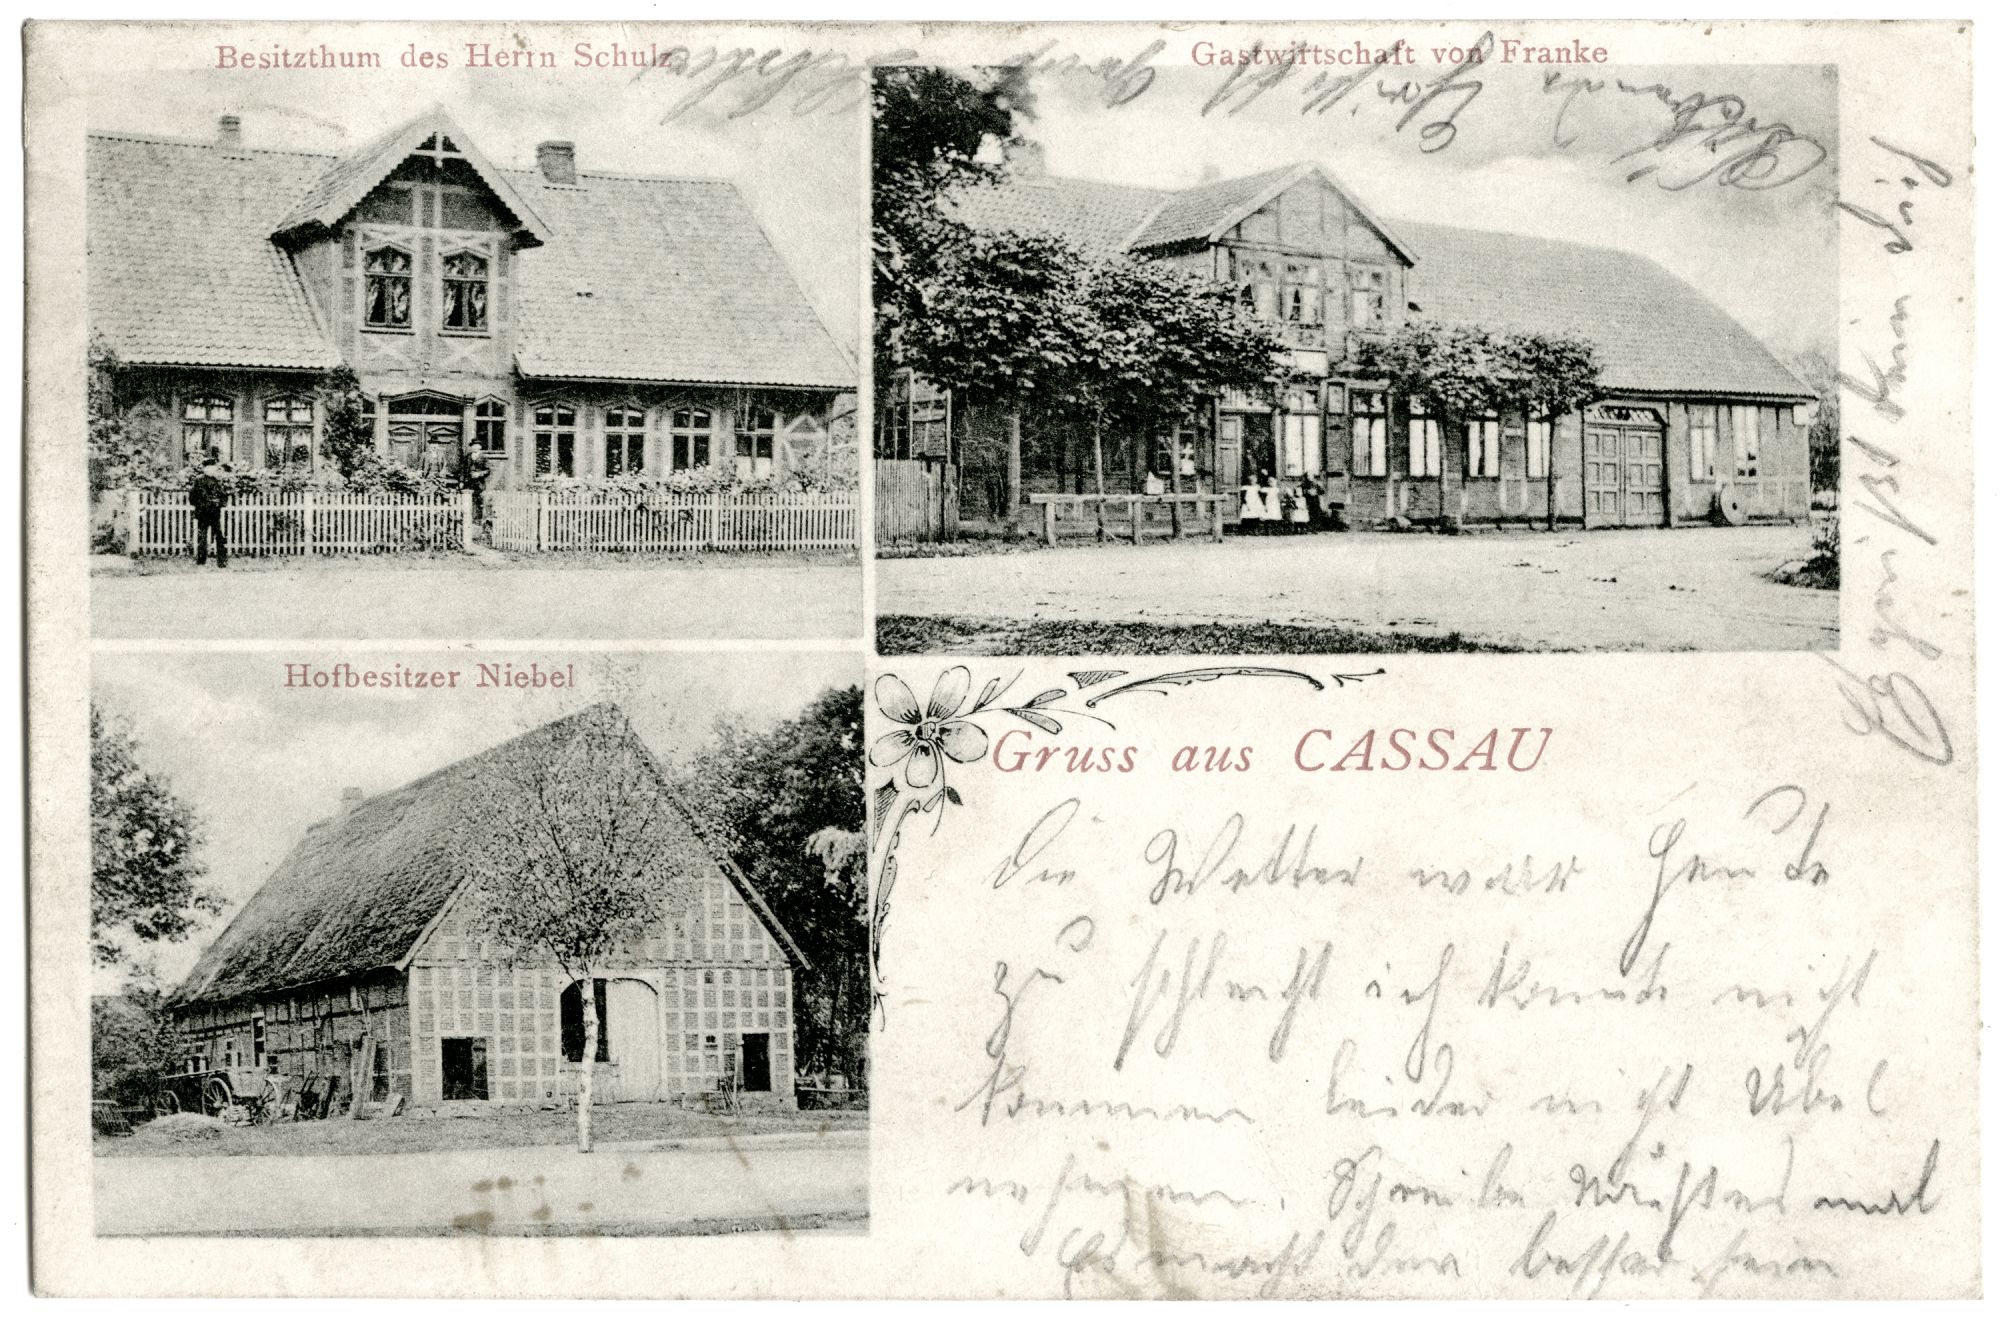 Besitzthum des Herrn Schulz
Gastwirtschaft von Franke
Hofbesitzer Niebel
Gruss aus CASSAU
Die Wetter war Heute
zu schlecht ich konnte nicht
kommen leider nicht Übel
nehmen. Schreibe Nächstes mal
Es macht der besser sein